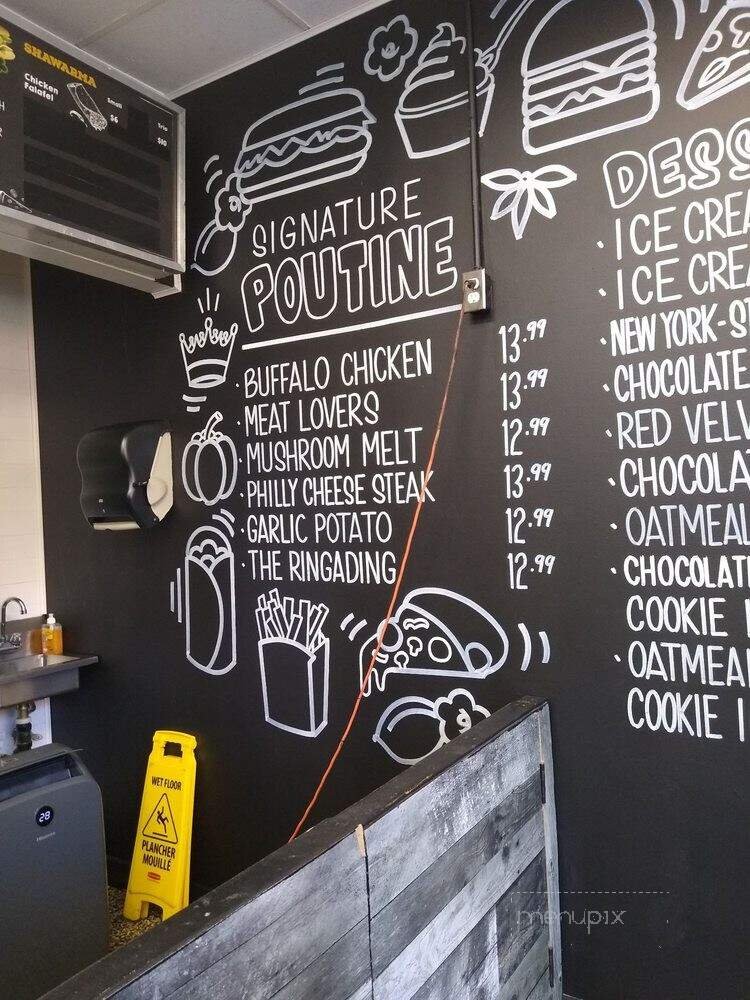 SHAWARMA
Chicken
Falafel
Small
$6
Trio
$10
SIGNATURE
POUTINE
· BUFFALO CHICKEN 13.99
· MEAT LOVERS 13.99
· MUSHROOM MELT 12.99
· PHILLY CHEESE STEAK 13.99
· GARLIC POTATO 12.99
· THE RINGADING 12.99
DESS
· ICE CREA
· ICE CREA
· NEW YORK-S
· CHOCOLATE
· RED VELV
· CHOCOLA
· OATMEAL
· CHOCOLAT
COOKIE
· OATMEA
COOKIE I
28
Hisense
WET FLOOR
PLANCHER
MOUILLÉ
menupix